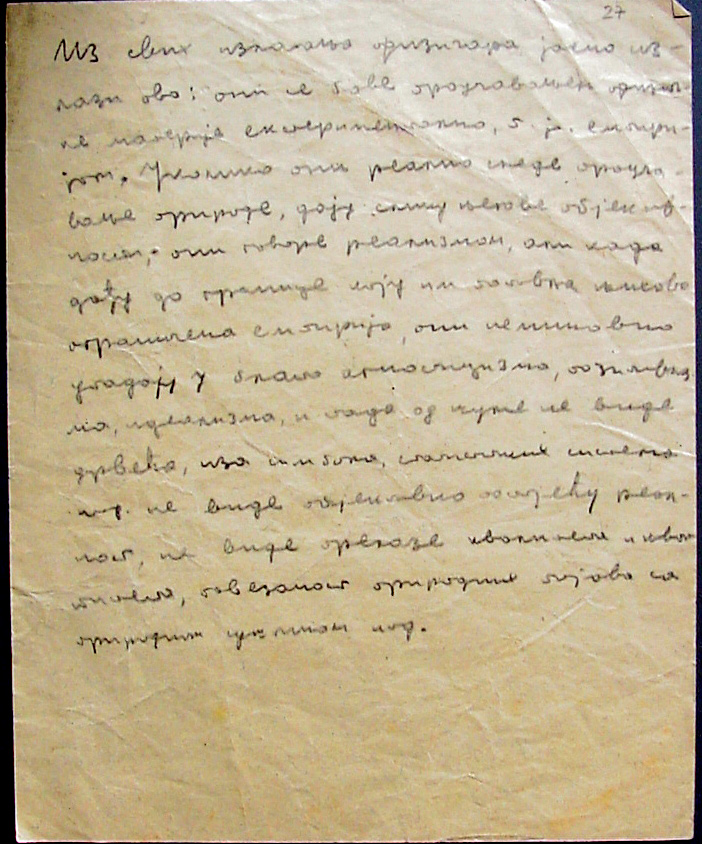 27
Из свих излагања физичара јасно из-
лази ово: они се баве проучавањем физич-
ке материје експериментално, т. ј. емпири-
јом. Уколико они реално гледе проуча-
вање природе, дају слику њезове објектив-
ности, они говоре реализмом, али када
дођу до границе коју им поставља њихова
ограничена емпирија, они неминовно
упадају у блато агностицизма, позитивиз-
ма, идеализма, и тада од шуме не виде
дрвећа, иза симбола, статичких система
итд. не виде објективно постојећу реал-
ност, не виде прелазе квалитета и кван-
титета, повезаност природних појава са
природном целином итд.